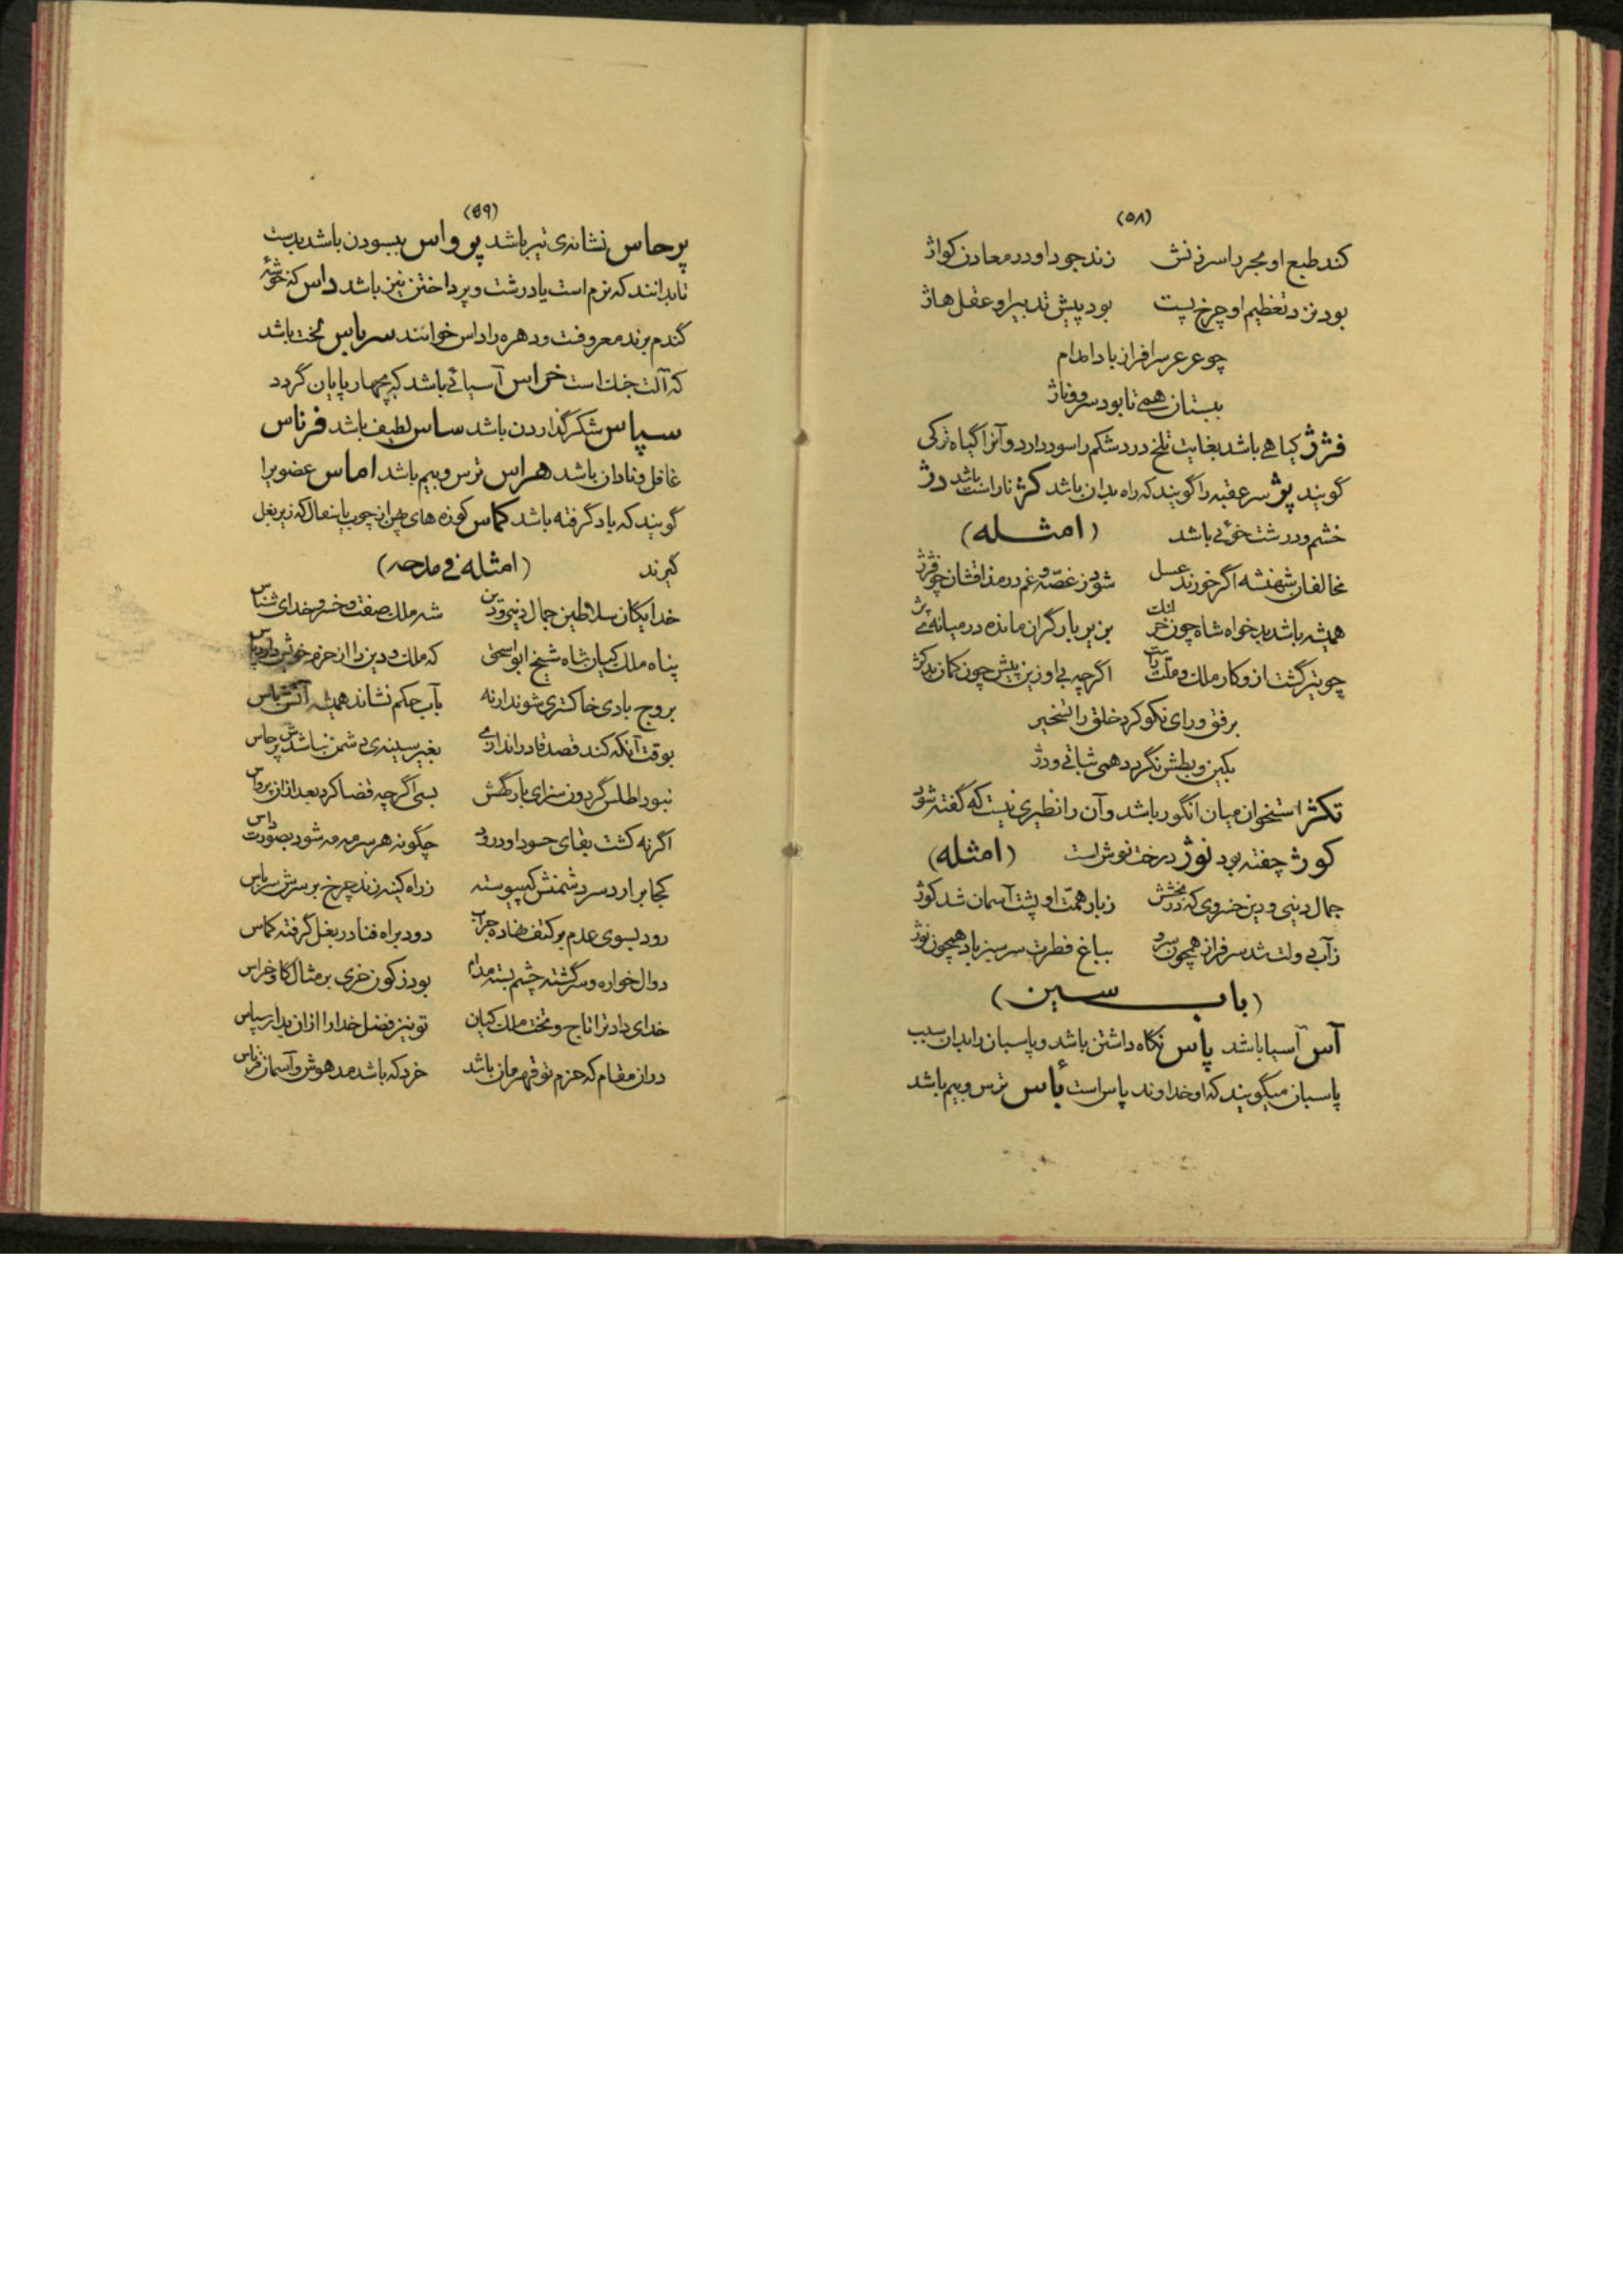 (۵۸)
کند طبع او مجر را سرزنش زند جود او در معادن کواژ
بود نزد تعظیم او چرخ پست بود پیش تدبیر او عقل هاژ
چو عرعر سرافراز بادا مدام
ببستان همی تا بود سرو و ناژ
فژژ کیاهی باشد بغایت تلخ درد شکم را سود دارد و آنرا گیاه ترکی
گویند پژ سر عقبه را گویند که راه بدان باشد کژ ناراست باشد دژ
خشم و درشت خوئی باشد (امثله)
مخالفان شهنشه اگر خورند عسل شود ز غصّه و غم در مذاقشان چو فژژ
همیشه باشد بدخواه شاه چون خر لنگ بزیر بار گران مانده در میانه پژ
چو تیر گشت ازو کار ملک و ملّت راست اگرچه بی او زین پیش چون کمان بد کژ
برفق و رای نکو کرد خلق را تسخیر
بکین و بطش نگردد همی شبانی و دژ
تکژ استخوان میان انگور باشد و آن را نظیری نیست که گفته شود
کوژ چفته بود نوژ درخت نوش است (امثله)
جمال دنیی و دین خسروی که در بخشش ز بار همّت او پشت آسمان شد کوژ
ز آب دولت شد سرفراز همچون سرو بباغ فطرت سرسبز باد همچون نوژ
(باب سین)
آس آسیا باشد پاس نگاه داشتن باشد و پاسبان را بدان سبب
پاسبان میگویند که او خداوند پاس است بأس ترس و بیم باشد
(۵۹)
پرحاس نشانه‌ی تیر باشد پرواس ببسودن باشد بدست
تا بدانند که نرم است یا درشت و پرداختن نیز باشد داس که خوشهٔ
گندم برند معروفت و دهره را داس خوانند سرپاس لخت باشد
که آلت جنك است خراس آسیائی باشد که بچهارپایان گردد
سپاس شکر گذاردن باشد ساس لطیف باشد فرناس
غافل و نادان باشد هراس ترس و بیم باشد اماس عضویرا
گویند که باد گرفته باشد کماس کوزه های پهن از چوب یا سفال که زیر بغل
گیرند (امثله فی مدحه)
خدایگان سلاطین جمال دنیی و دین شه ملك صفت و خسرو خدای شناس
پناه ملك کیان شاه شیخ ابو اسحق که ملك و دین را از حزم خویش دارد پاس
بروج بادی خاکتری شوند ارنه بآب حکم نشاند همیشه آتش باس
بوقت آنکه کند قصد قادر اندازی بغیر سینه‌ی دشمن نباشدش برجاس
نبود اطلس گردون سزای بارگهش بسی اگرچه قضا کرد بعد ازان پرواس
اگر نه کشت بقای حسود او درود چگونه هر سر مه مه شود بصورت داس
کجا برآرد سر دشمنش که پیوسته ز راه کینه زند چرخ بر سرش سرپاس
رود بسوی عدم بر کتف نهاده جراب دود براه فنا در بغل گرفته کماس
دوال خواره و سرگشته چشم بسته مدام بود ز کون خری بر مثال گاو خراس
خدای داد ترا تاج و تخت ملك کیان تو نیز فضل خدا را ازان بدار سپاس
دران مقام که حزم تو قهرمان باشد خرد که باشد مدهوش و آسمان فرناس